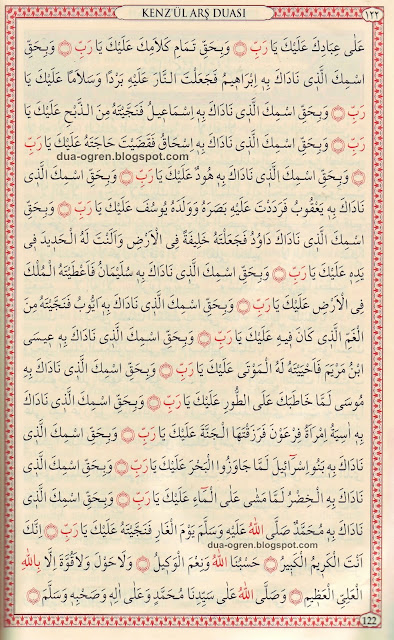 KENZ'ÜL ARŞ DUASI
١٢٢
عَلٰى عِبَادِكَ عَلَيْكَ يَا رَبِّ ۞ وَبِحَقِّ تَمَامِ كَلَامِكَ عَلَيْكَ يَا رَبِّ ۞ وَبِحَقِّ
اسْمِكَ الَّذٖى نَادَاكَ بِهٖ اِبْرَاهٖيمُ فَجَعَلْتَ النَّارَ عَلَيْهِ بَرْدًا وَسَلَامًا عَلَيْكَ يَا
رَبِّ ۞ وَبِحَقِّ اسْمِكَ الَّذٖى نَادَاكَ بِهٖ اِسْمَاعٖيلُ فَنَجَّيْتَهُ مِنَ الذَّبْحِ عَلَيْكَ يَا
رَبِّ ۞ وَبِحَقِّ اسْمِكَ الَّذٖى نَادَاكَ بِهٖ اِسْحَاقُ فَقَضَيْتَ حَاجَتَهُ عَلَيْكَ يَا رَبِّ
dua-ogren.blogspot.com
۞ وَبِحَقِّ اسْمِكَ الَّذٖى نَادَاكَ بِهٖ هُودٌ عَلَيْكَ يَا رَبِّ ۞ وَبِحَقِّ اسْمِكَ الَّذٖى
نَادَاكَ بِهٖ يَعْقُوبُ فَرَدَدْتَ عَلَيْهِ بَصَرَهُ وَوَلَدَهُ يُوسُفَ عَلَيْكَ يَا رَبِّ ۞ وَبِحَقِّ
اسْمِكَ الَّذٖى نَادَاكَ دَاوُدُ فَجَعَلْتَهُ خَلٖيفَةً فِى الْاَرْضِ وَاَلَنْتَ لَهُ الْحَدٖيدَ فٖى
يَدِهٖ عَلَيْكَ يَا رَبِّ ۞ وَبِحَقِّ اسْمِكَ الَّذٖى نَادَاكَ بِهٖ سُلَيْمَانُ فَاَعْطَيْتَهُ الْمُلْكَ
فِى الْاَرْضِ عَلَيْكَ يَا رَبِّ ۞ وَبِحَقِّ اسْمِكَ الَّذٖى نَادَاكَ بِهٖ اَيُّوبُ فَنَجَّيْتَهُ مِنَ
الْغَمِّ الَّذٖى كَانَ فٖيهِ عَلَيْكَ يَا رَبِّ ۞ وَبِحَقِّ اسْمِكَ الَّذٖى نَادَاكَ بِهٖ عٖيسَى
ابْنُ مَرْيَمَ فَاَحْيَيْتَهُ لَهُ الْمَوْتٰى عَلَيْكَ يَا رَبِّ ۞ وَبِحَقِّ اسْمِكَ الَّذٖى نَادَاكَ بِهٖ
مُوسٰى لَمَّا خَاطَبَكَ عَلَى الطُّورِ عَلَيْكَ يَا رَبِّ ۞ وَبِحَقِّ اسْمِكَ الَّذٖى نَادَاكَ
بِهٖ اٰسِيَةُ امْرَاَةُ فِرْعَوْنَ فَرَزَقْتَهَا الْجَنَّةَ عَلَيْكَ يَا رَبِّ ۞ وَبِحَقِّ اسْمِكَ الَّذٖى
نَادَاكَ بِهٖ بَنُو اِسْرَائٖيلَ لَمَّا جَاوَزُوا الْبَحْرَ عَلَيْكَ يَا رَبِّ ۞ وَبِحَقِّ اسْمِكَ الَّذٖى
نَادَاكَ بِهِ الْخِضْرُ لَمَّا مَشٰى عَلَى الْمَاءِ عَلَيْكَ يَا رَبِّ ۞ وَبِحَقِّ اسْمِكَ الَّذٖى
نَادَاكَ بِهٖ مُحَمَّدٌ صَلَّى اللّٰهُ عَلَيْهِ وَسَلَّمَ يَوْمَ الْغَارِ فَنَجَّيْتَهُ عَلَيْكَ يَا رَبِّ ۞ اِنَّكَ
dua-ogren.blogspot.com
اَنْتَ الْكَرٖيمُ الْكَبٖيرُ ۞ حَسْبُنَا اللّٰهُ وَنِعْمَ الْوَكٖيلُ ۞ وَلَا حَوْلَ وَلَا قُوَّةَ اِلَّا بِاللّٰهِ
الْعَلِىِّ الْعَظٖيمِ ۞ وَصَلَّى اللّٰهُ عَلٰى سَيِّدِنَا مُحَمَّدٍ وَعَلٰى اٰلِهٖ وَصَحْبِهٖ وَسَلَّمَ ۞
122